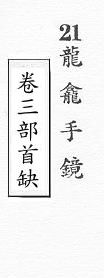 21龍龕手鏡
卷三部首缺